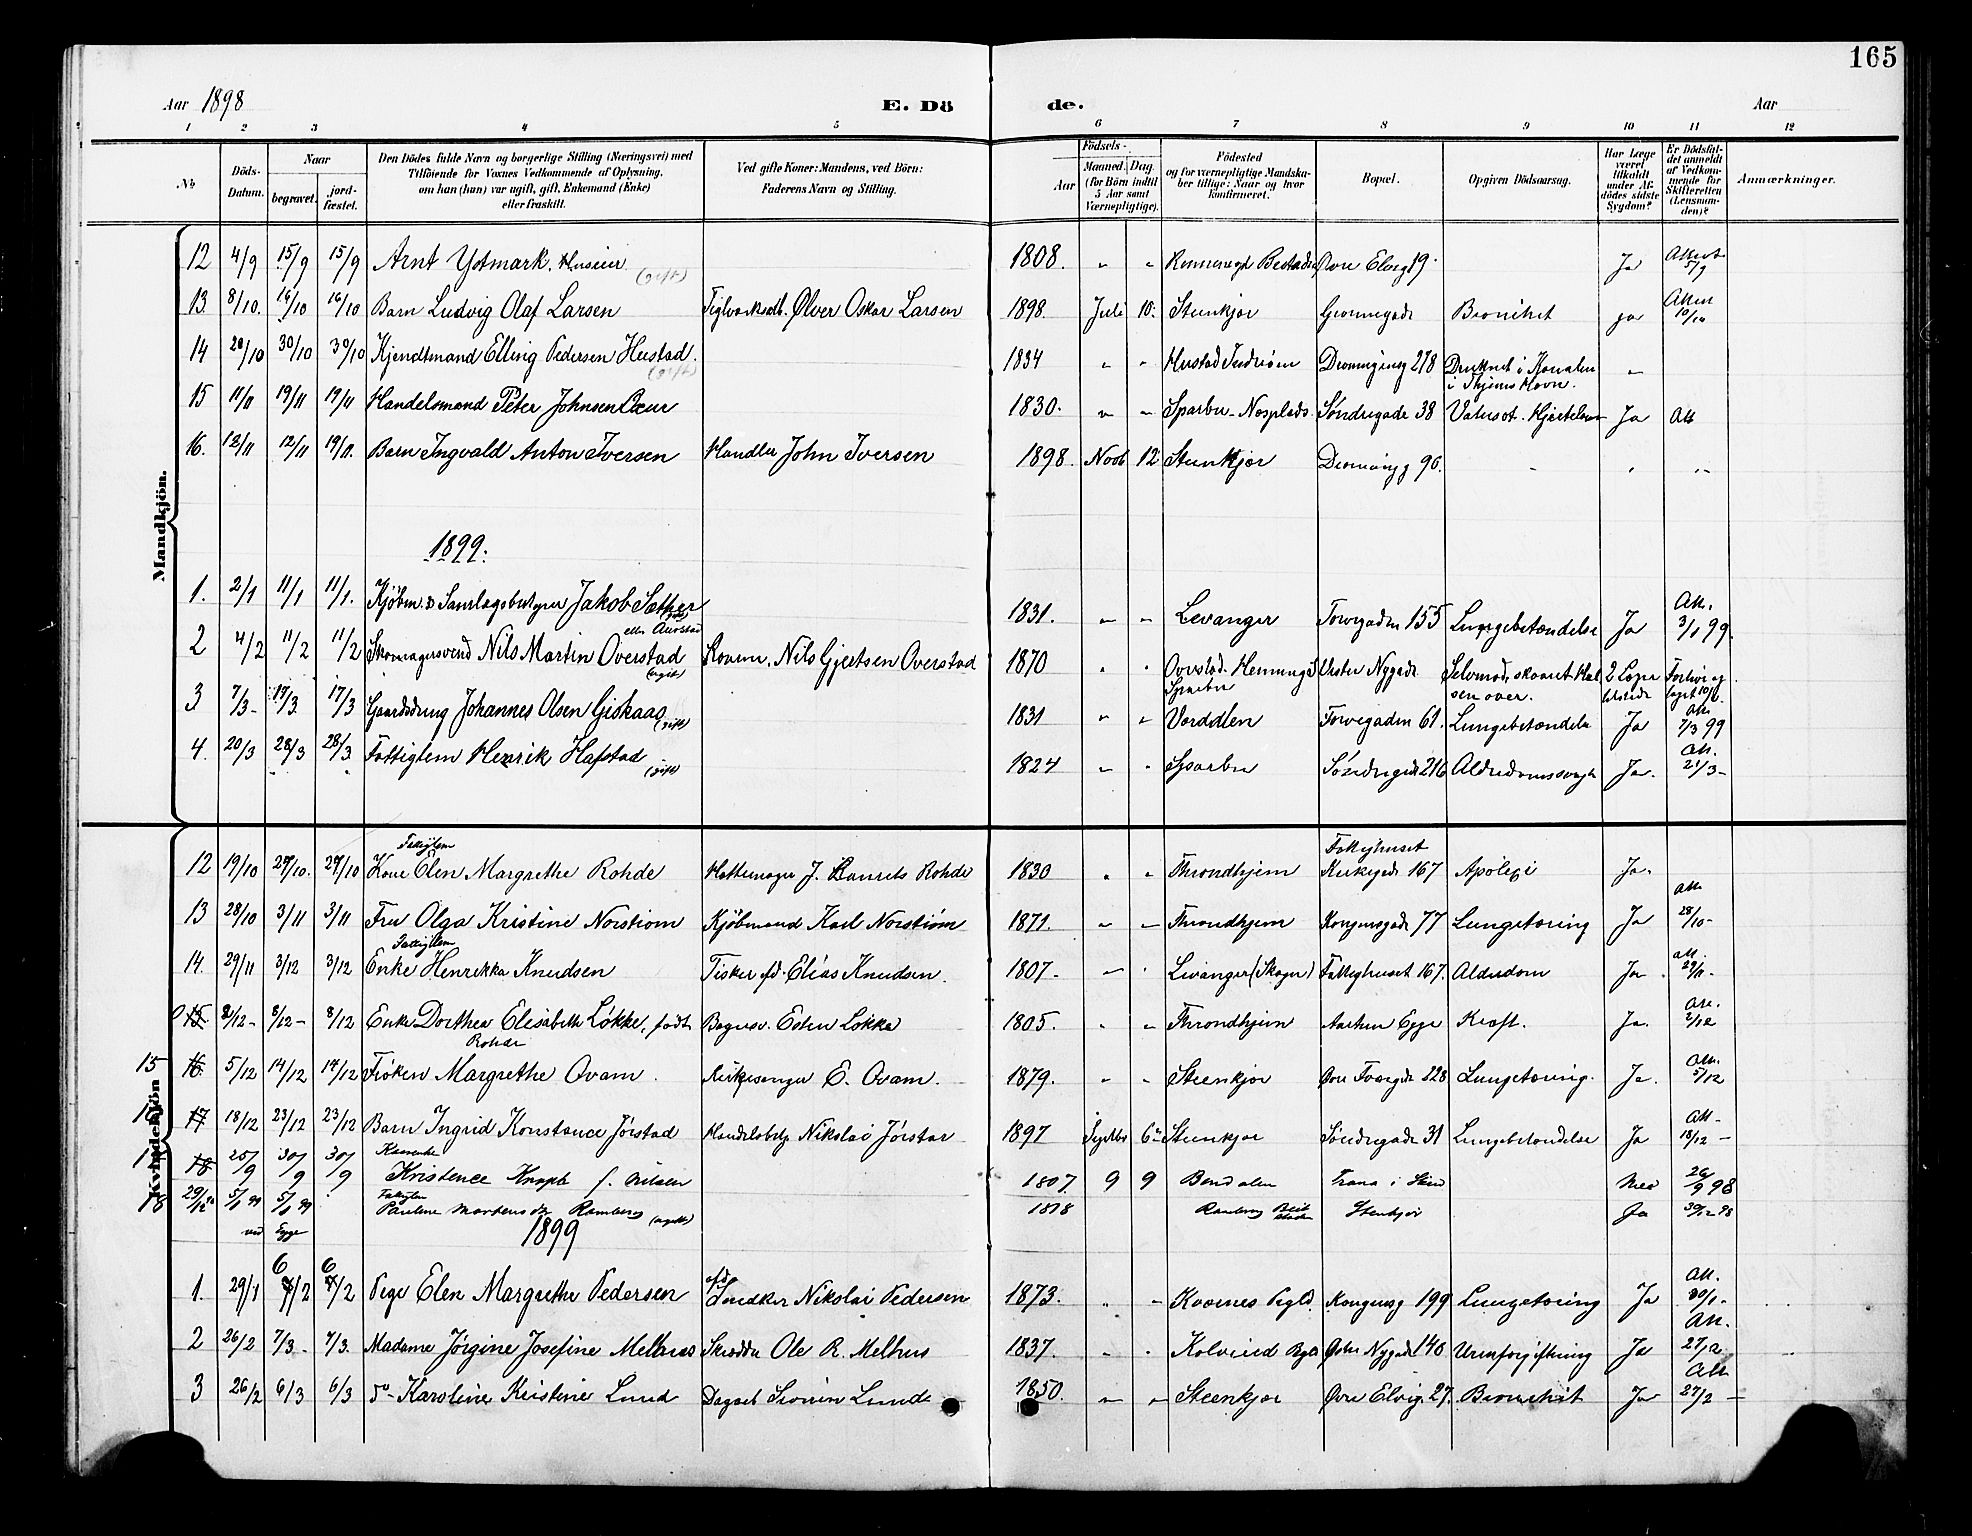 165
Aar 1898 E. Dö de. Aar
1 2 3 4 5 6 7 8 9 10 11 12
No Döds-Datum. Naar begravet. jordfæstet. Den Dödes fulde Navn og borgerlige Stilling (Næringsvei) med Tilföiende for Voxnes Vedkommende af Oplysning, om han (hun) var ugift, gift, Enkemand (Enke) eller fraskilt. Ved gifte Koner: Mandens, ved Börn: Faderens Navn og Stilling. Födsels- Aar Maaned Dag. (for Börn indtil 5 Aar samt Værnepligtige). Födested og for værnepligtige Mandskaber tillige: Naar og hvor konfirmeret. Bopæl. Opgiven Dödsaarsag. Har Læge været tilkaldt under Afdödes sidste Sygdom? Er Dödsfaldet anmeldt af Vedkommende for Skifteretten (Lensmanden)? Anmærkninger.
Mandkjön.
12 4/9 15/9 15/9 Arnt Ystmark. Huseier (gift) 1808. " " Øvre Elveg 19. Ja Attest 5/9
13. 8/10. 16/10 16/10 Barn Ludvig Olaf Larsen Oskar Larsen 1898. Juli 10. Steenkjær Grønnegade Bronchit ja Atten 10/10
14 20/10 30/10 30/10 Kjendtmand Elling Pedersen Hustad. (gift) 1834 " " Hustad Inderøen Dronningensg 278 Druknet i Kanalen i Thjems Havn. "
15 11/11 19/11 19/11 Handelsmand Peter Johnsen 1830. " " Sparbu Søndregade 38 Vatersot. Ja Att
16. 12/11 12/11 19/11. Barn Ingvald Anton Iversen Handler John Iversen 1898. Novb 12 Steenkjær Dronningg 96. " " "
1899.
1. 2/1 11/1 11/1. Kjøbm. & Samlagsbestyrer Jakob Sæther (gift) 1831. " " Levanger Torvegaden 155 Lungebetændelse Ja Att. 3/1 99.
2 4/2 11/2 11/2 Skomagersvend Nils Martin Overstad eller Aurstad (ugift) Nils Gjertsen Overstad 1870 " " Sparbu Vestre Nygade Selvmord, skaaret Halsen over. 2 Læger
3 7/3- 17/3. 17/3 Gaardsdreng Johannes Olsen Giskaas (gift) 1831 " " Værdalen Torvegaden 61. Lungebetændelse Ja Att 7/3 99
4. 20/3 28/3 28/3. Fattiglem Henrik Hafstad (gift) 1824 " " Sparbu Søndregade 216 Alderdomssvaghed Ja. Att. 21/3-
Kvindekjön
12 19/10 27/10. 27/10 Fattiglem Kone Elen Margrethe Rohde Hattemager J. Rohde 1830 " " Throndhjem Fattighuset Kirkegade 167 Apolexi Ja.
13 28/10 3/11 3/11 Fru Olga Kristine Norstrøm Kjøbmand Karl Norstrøm 1871. " " Throndhjem Kongensgade 77 Lungetæring Ja Att 28/10-
14. 29/11 3/12 3/12 Fattiglem Enke Henrikka Knudsen Fisker afd. Elias Knudsen. 1807. " " Levanger (Skogn) Fattighuset 167. Alderdom Ja. att. 29/11.
15 2/12- 8/12- 8/12 Enke Dorthea Elisabeth Løkke, født Rohde Bagersv. Esten Løkke 1805. " " Throndhjem Egge Kræft. Ja. Att. 2/12
15 16. 5/12 14/12 14/12 Frøken Margrethe Qvam. Kirkesanger E. Qvam. 1879. " " Steenkjær Øvre Torvgade 228 Lungetæring. Ja. Att. 5/12
17 18/12 23/12 23/12 Barn Ingrid Konstance Jørstad Handelsbetj Nikolai Jørstad 1897 Septbr 6te Steenkjær Søndregade 31 Lungebetændelse Ja Att- 18/12-
18 25/9 30/9 30/9 Kristence f. Nilsen 1807. 9 9 Trana i Nei 26/9 98
18 29/12 98 5/1 99 5/1 99 ved Egge Fattiglem Pauline Ramberg (ugift) 1818 Ramberg Beitstaden Stenkjær Ja 30/12 98
1899
1. 29/1 6/2 6/2 Pige Elen Margrethe Pedersen afd. Snedker Nikolai Pedersen 1873. " " Kværnes Kongensg 199 Lungetæring Ja Att. 30/1.
2 26/2 7/3- 7/3. Madame Jørgine Josefine Melhus Skrædder Ole R. Melhus 1837. " " Kolvereid Østre Nygade 140 Urinforgiftning Ja Att. 27/2
3 26/2 6/3 6/3 do- Karoline Kristine Lund Lund 1850. " " Steenkjær Øvre Elveg. 27. Bronchit Ja Att 27/2 -